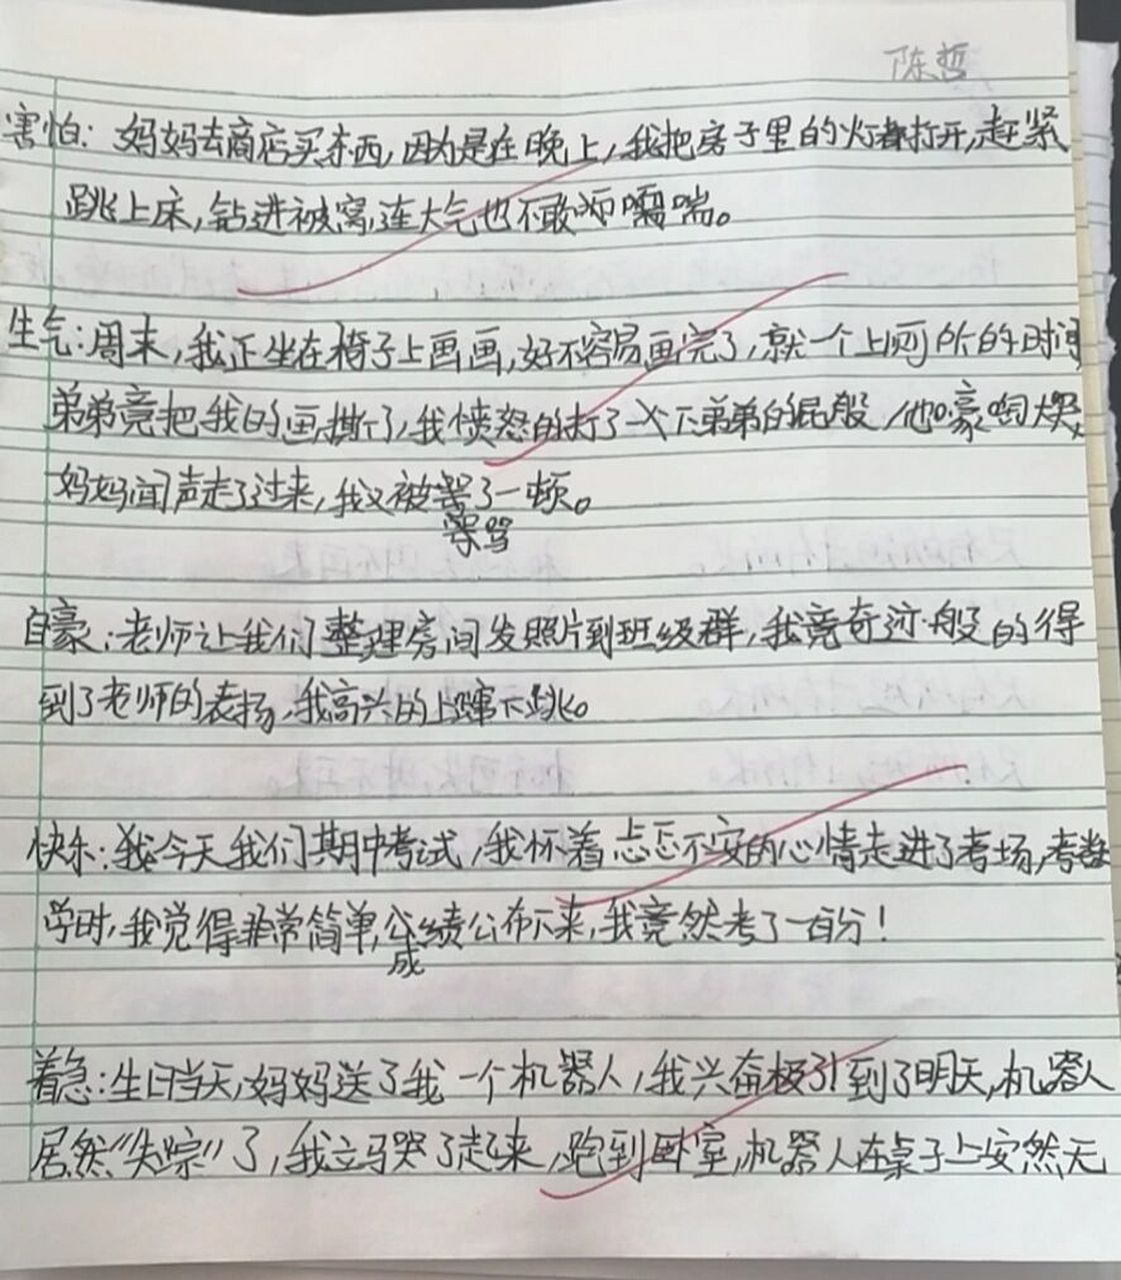 陈哲
害怕：妈妈去商店买东西，因为是在晚上，我把房子里的灯都打开，赶紧
跳上床，钻进被窝，连大气也不敢喘。
生气：周末，我正坐在椅子上画画，好不容易画完了，就一个上厕所的时间
弟弟竟把我的画撕了，我愤怒的打了一下弟弟的屁股，他嚎啕大哭，
妈妈闻声走了过来，我又被骂了一顿。
自豪：老师让我们整理房间发照片到班级群，我竟奇迹般的得
到了老师的表扬，我高兴的上蹿下跳。
快乐：我今天我们期中考试，我怀着忐忑不安的心情走进了考场，考数
学时，我觉得非常简单，成绩公布下来，我竟然考了一百分！
着急：生日当天，妈妈送了我一个机器人，我兴奋极了！到了明天，机器人
居然“失踪”了，我立马哭了起来，跑到卧室，机器人在桌子上安然无